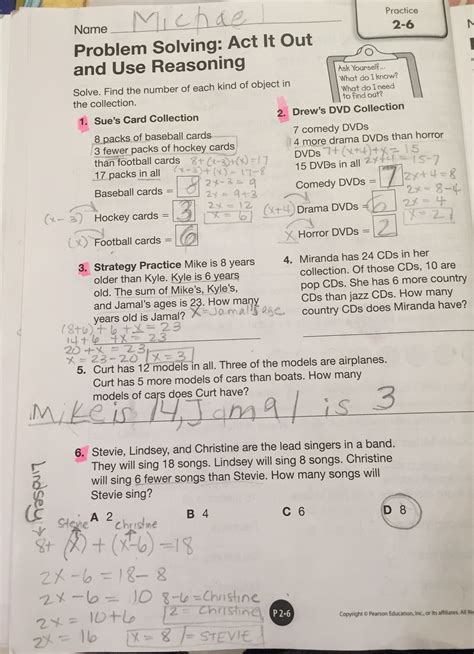 Name Michael
Practice
2-6
Problem Solving: Act It Out
and Use Reasoning
Ask Yourself...
What do I know?
What do I need
to find out?
Solve. Find the number of each kind of object in
the collection.
1. Sue's Card Collection
8 packs of baseball cards
3 fewer packs of hockey cards
than football cards 8+(x-3)+(x)=17
17 packs in all (x-3)+(x)=17-8
2x-3=9
Baseball cards = 8
2x=9+3
2x=12
x=6
(x-3) Hockey cards = 3
(x) Football cards = 6
2. Drew's DVD Collection
7 comedy DVDs
4 more drama DVDs than horror
DVDs 7+(x+4)+x=15
15 DVDs in all 2x+4=15-7
Comedy DVDs = 7
2x+4=8
2x=8-4
2x=4
x=2
(x+4) Drama DVDs = 6
X Horror DVDs = 2
3. Strategy Practice Mike is 8 years
older than Kyle. Kyle is 6 years
old. The sum of Mike's, Kyle's,
and Jamal's ages is 23. How many
years old is Jamal? X=Jamal's age
(8+6)+6+x=23
14+6+x=23
20+x=23
x=23-20 x=3
4. Miranda has 24 CDs in her
collection. Of those CDs, 10 are
pop CDs. She has 6 more country
CDs than jazz CDs. How many
country CDs does Miranda have?
5. Curt has 12 models in all. Three of the models are airplanes.
Curt has 5 more models of cars than boats. How many
models of cars does Curt have?
Mike is 14, Jamal is 3
6. Stevie, Lindsey, and Christine are the lead singers in a band.
They will sing 18 songs. Lindsey will sing 8 songs. Christine
will sing 6 fewer songs than Stevie. How many songs will
Stevie sing?
A 2
B 4
C 6
D 8
Lindsey
Stevie
christine
8+(x)+(x-6)=18
2x-6=18-8
2x-6=10
2x=10+6
2x=16
8-6=Christine
2=Christine
x=8=STEVIE
P 2-6
Copyright © Pearson Education, Inc., or its affiliates. All Re